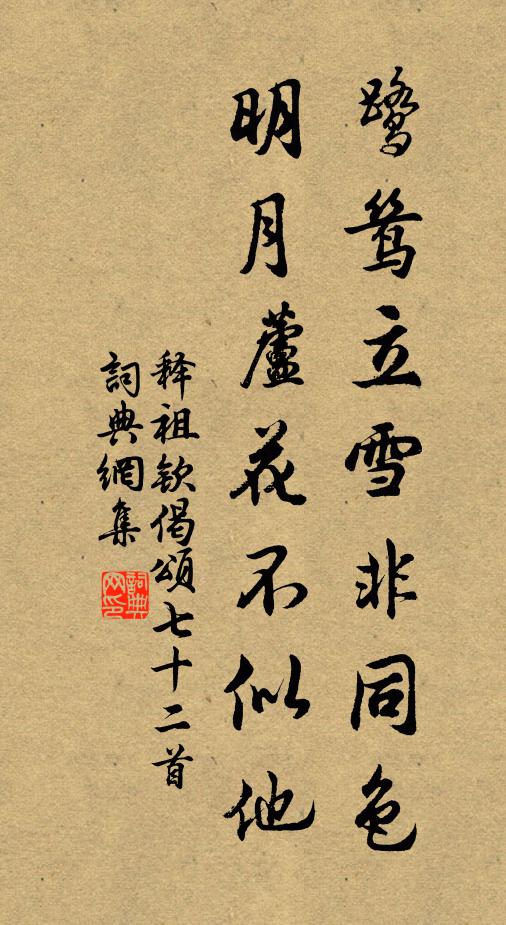 鹭鸶立雪非同色
明月蘆花不似他
释祖钦偈頌七十二首
詞典網集
詞典网印